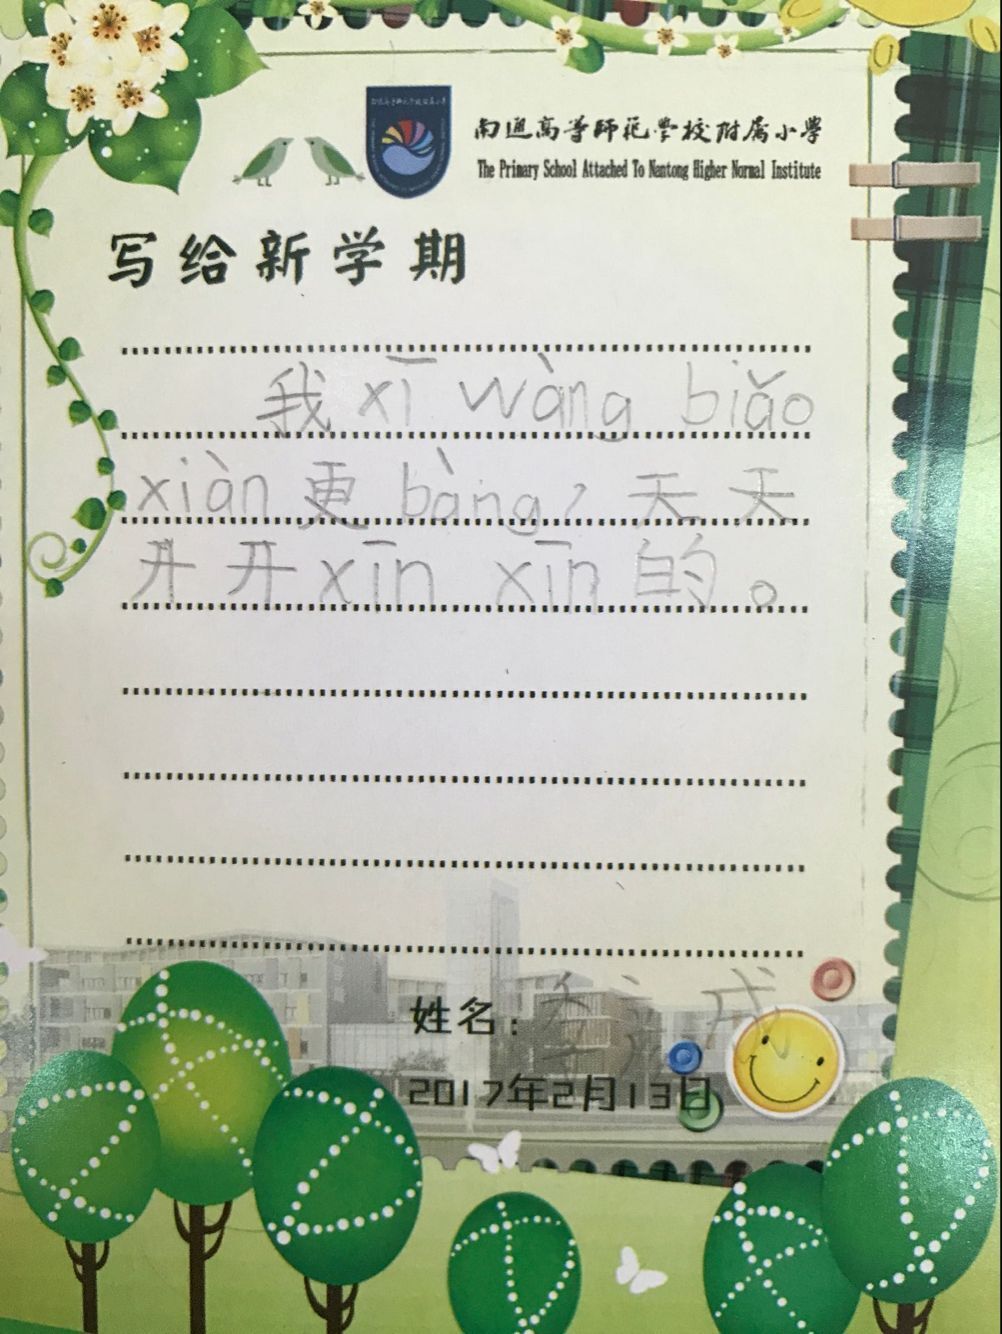 南通高等師范學校附属小學
The Primary School Attached To Nantong Higher Normal Institute
写给新学期
我xī wàng biǎo
xiàn更bàng，天天
开开xīn xīn的。
姓名：
2017年2月13日